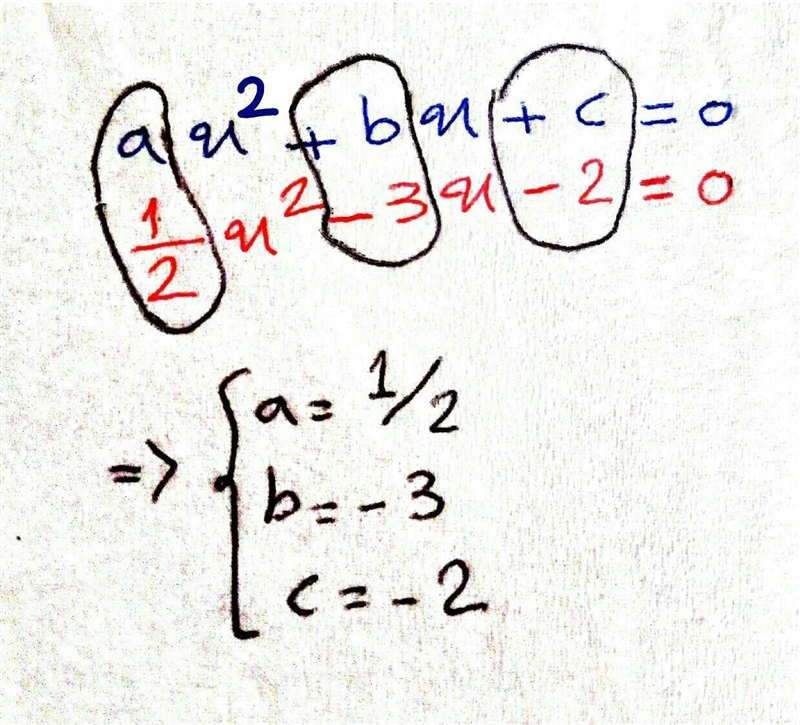 ax² + bx + c = 0
1/2 x² - 3x - 2 = 0
=> { a = 1/2
b = - 3
c = - 2